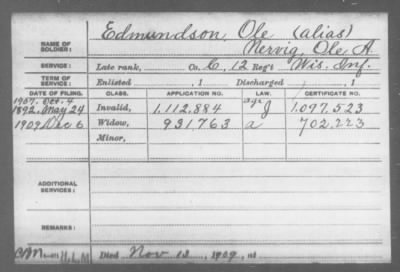 NAME OF SOLDIER: Edmundson, Ole (alias)
Nervig, Ole A
SERVICE: Late rank, Co. C, 12 Reg't Wis. Inf.
TERM OF SERVICE: Enlisted , 1 Discharged , 1
DATE OF FILING. CLASS. APPLICATION NO. LAW. CERTIFICATE NO.
1907. Oct. 4 age
1892. May 24 Invalid, 1,112,884 J 1,097,523
1909 Dec 6 Widow, 931,763 a 702,223
Minor,
ADDITIONAL SERVICES:
REMARKS:
Died Nov 12, 1909, at